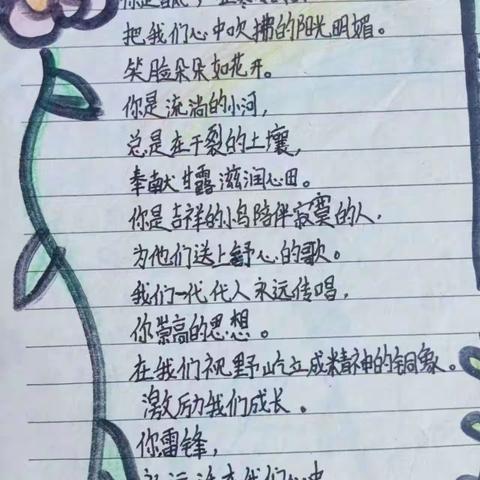 把我们心中吹拂的阳光明媚。
笑脸朵朵如花开。
你是流淌的小河,
总是在干裂的土壤,
奉献甘露滋润心田。
你是吉祥的小鸟陪伴寂寞的人,
为他们送上舒心的歌。
我们一代代人永远传唱,
你崇高的思想。
在我们视野屹立成精神的铜象。
激励我们成长。
你雷锋,